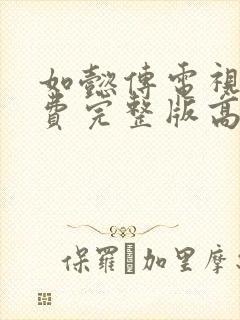 如懿傳電視
費完整版高
保羅·加里摩